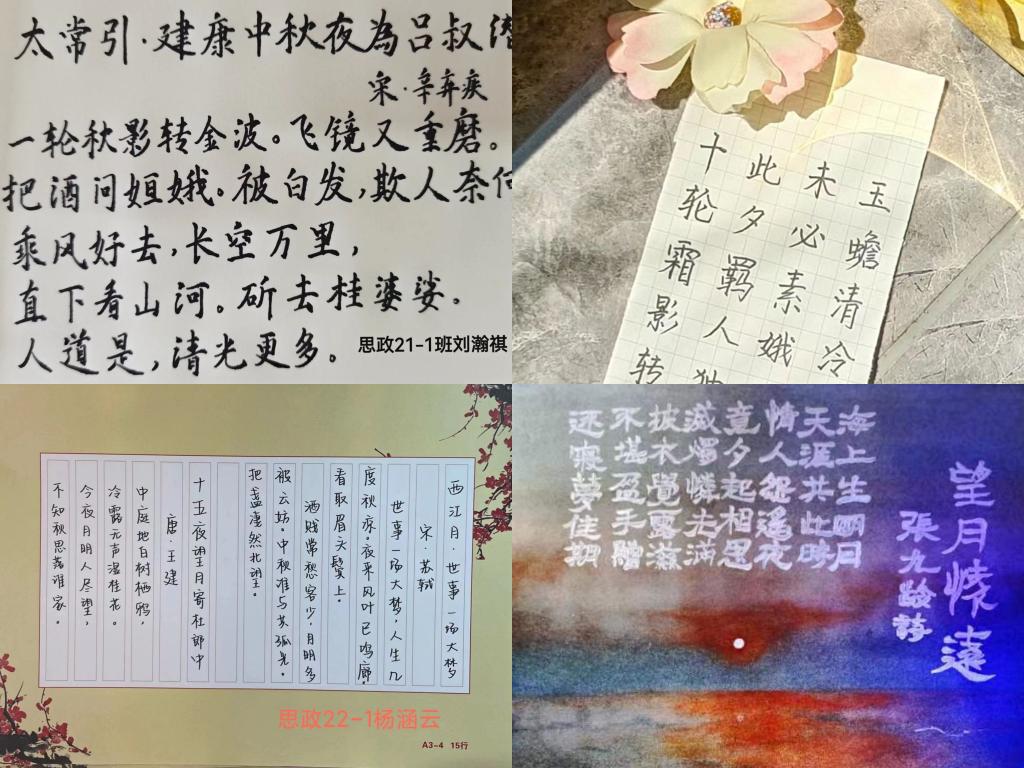 太常引·建康中秋夜為吕叔
宋·辛弃疾
一轮秋影转金波。飞镜又重磨。
把酒问姮娥。被白发,欺人奈
乘风好去,长空万里,
直下看山河。斫去桂婆娑。
人道是,清光更多。
思政21-1班刘瀚祺
十轮霜影转
此夕羁人独
未必素娥
玉蟾清冷
西江月·世事一场大梦
宋·苏轼
世事一场大梦,人生几
度秋凉。夜来风叶已鸣廊。
看取眉头鬓上。
酒贱常愁客少,月明多
被云妨。中秋谁与共孤光。
把盏凄然北望。
十五夜望月寄杜郎中
唐·王建
中庭地白树栖鸦,
冷露无声湿桂花。
今夜月明人尽望,
不知秋思落谁家。
思政22-1杨涵云
A3-4 15行
望月懷遠
張九齡詩
海上生明月
天涯共此時
情人怨遥夜
竟夕起相思
滅燭憐光滿
披衣覺露滋
不堪盈手贈
还寢夢佳期